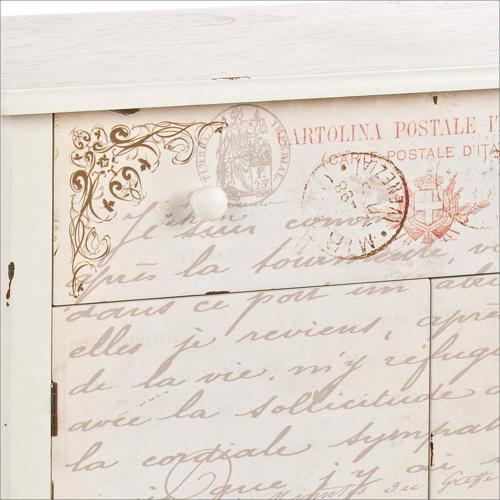 ARTOLINA POSTALE
(CARTE POSTALE D'ITA
Je suis
après la tourmente,
dans ce port un
elles je reviens, après
de la vie, m'y réfug
avec la sollicitude
la cordiale sympat
que j'y ai
du Greffe